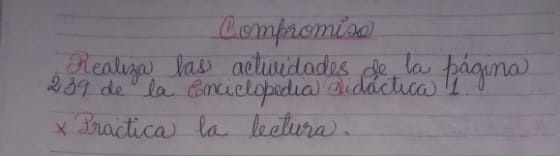 Compromiso
Realiza las actividades de la página
239 de la Enciclopedia didáctica 1.
x Practica la lectura.